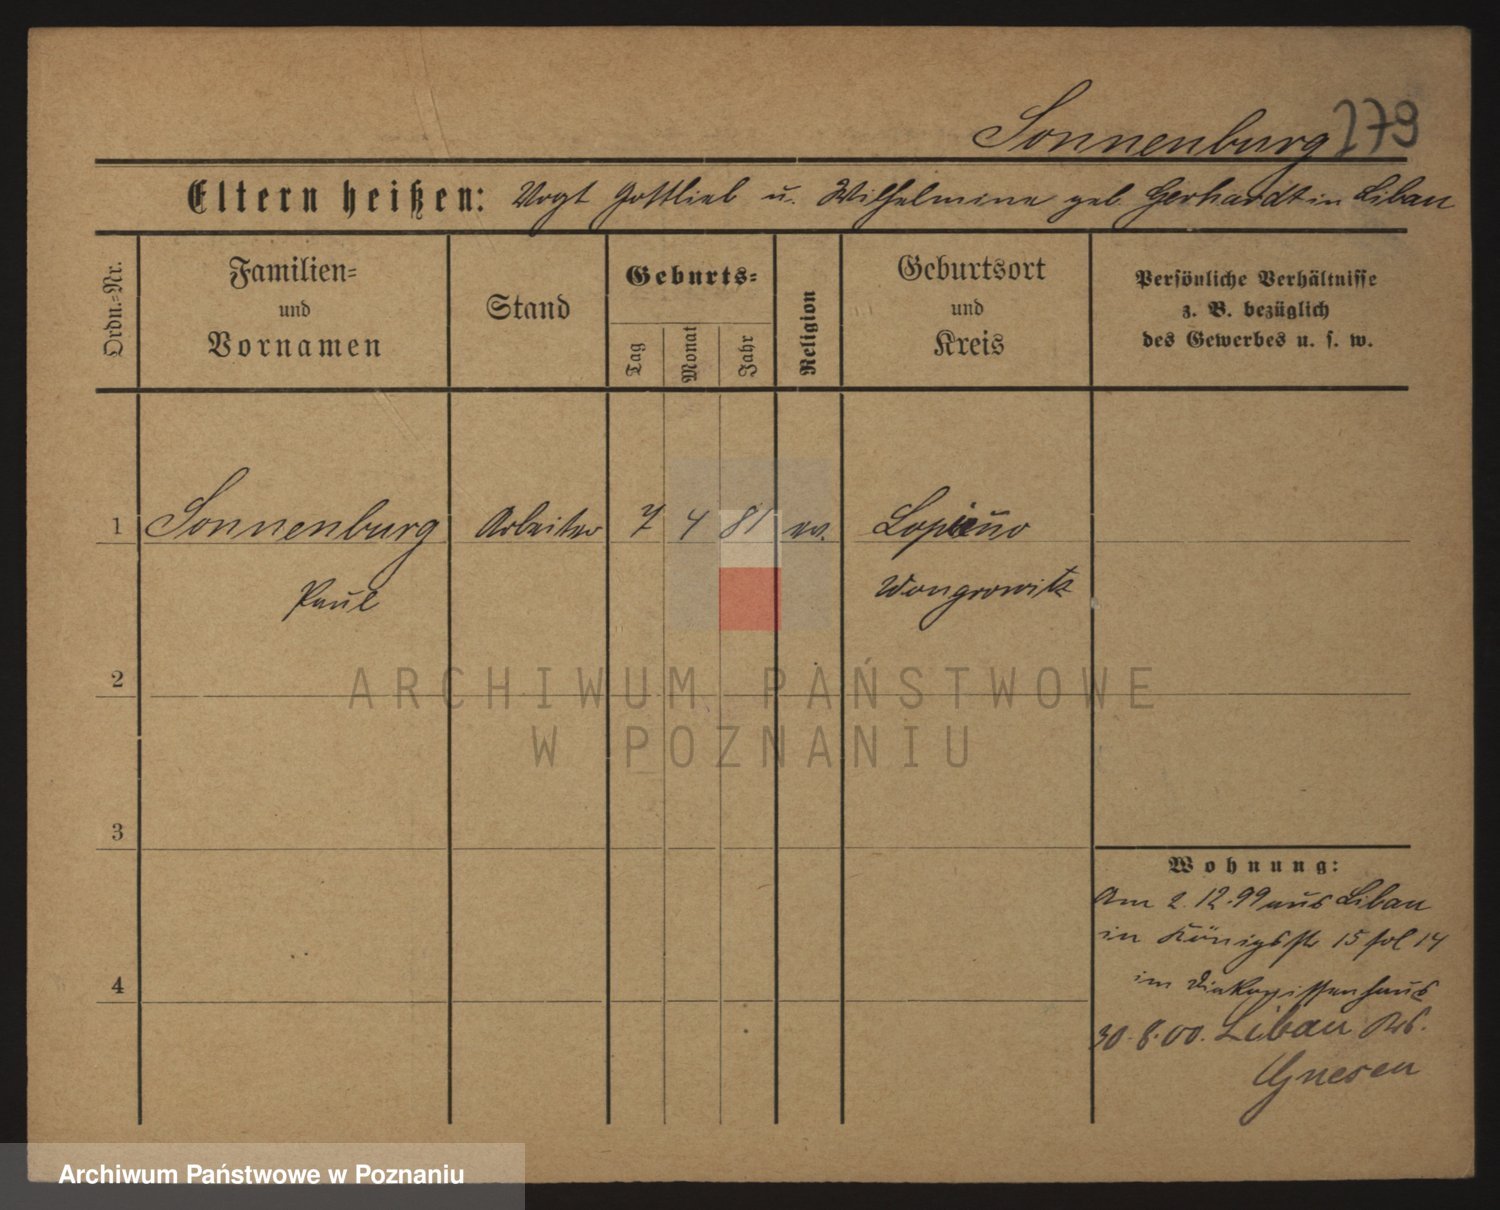 Sonnenburg 279
Eltern heißen: Vogt Gottlieb u. Wilhelmine geb Gerhardt in Libau
Ordn.=Nr.
Familien=
und
Vornamen
Stand
Geburts=
Tag
Monat
Jahr
Religion
Geburtsort
und
Kreis
Persönliche Verhältnisse
z. B. bezüglich
des Gewerbes u. s. w.
1 Sonnenburg Arbeiter 7 4 81 ev.
Paul Wongrowitz
2
ARCHIWUM PAŃSTWOWE
W POZNANIU
3
Wohnung:
Am 2.12.99 aus Libau
in Königsstr 15 fol 14
4
im Diakonissenhaus
30.8.00. Libau
Gnesen
Archiwum Państwowe w Poznaniu